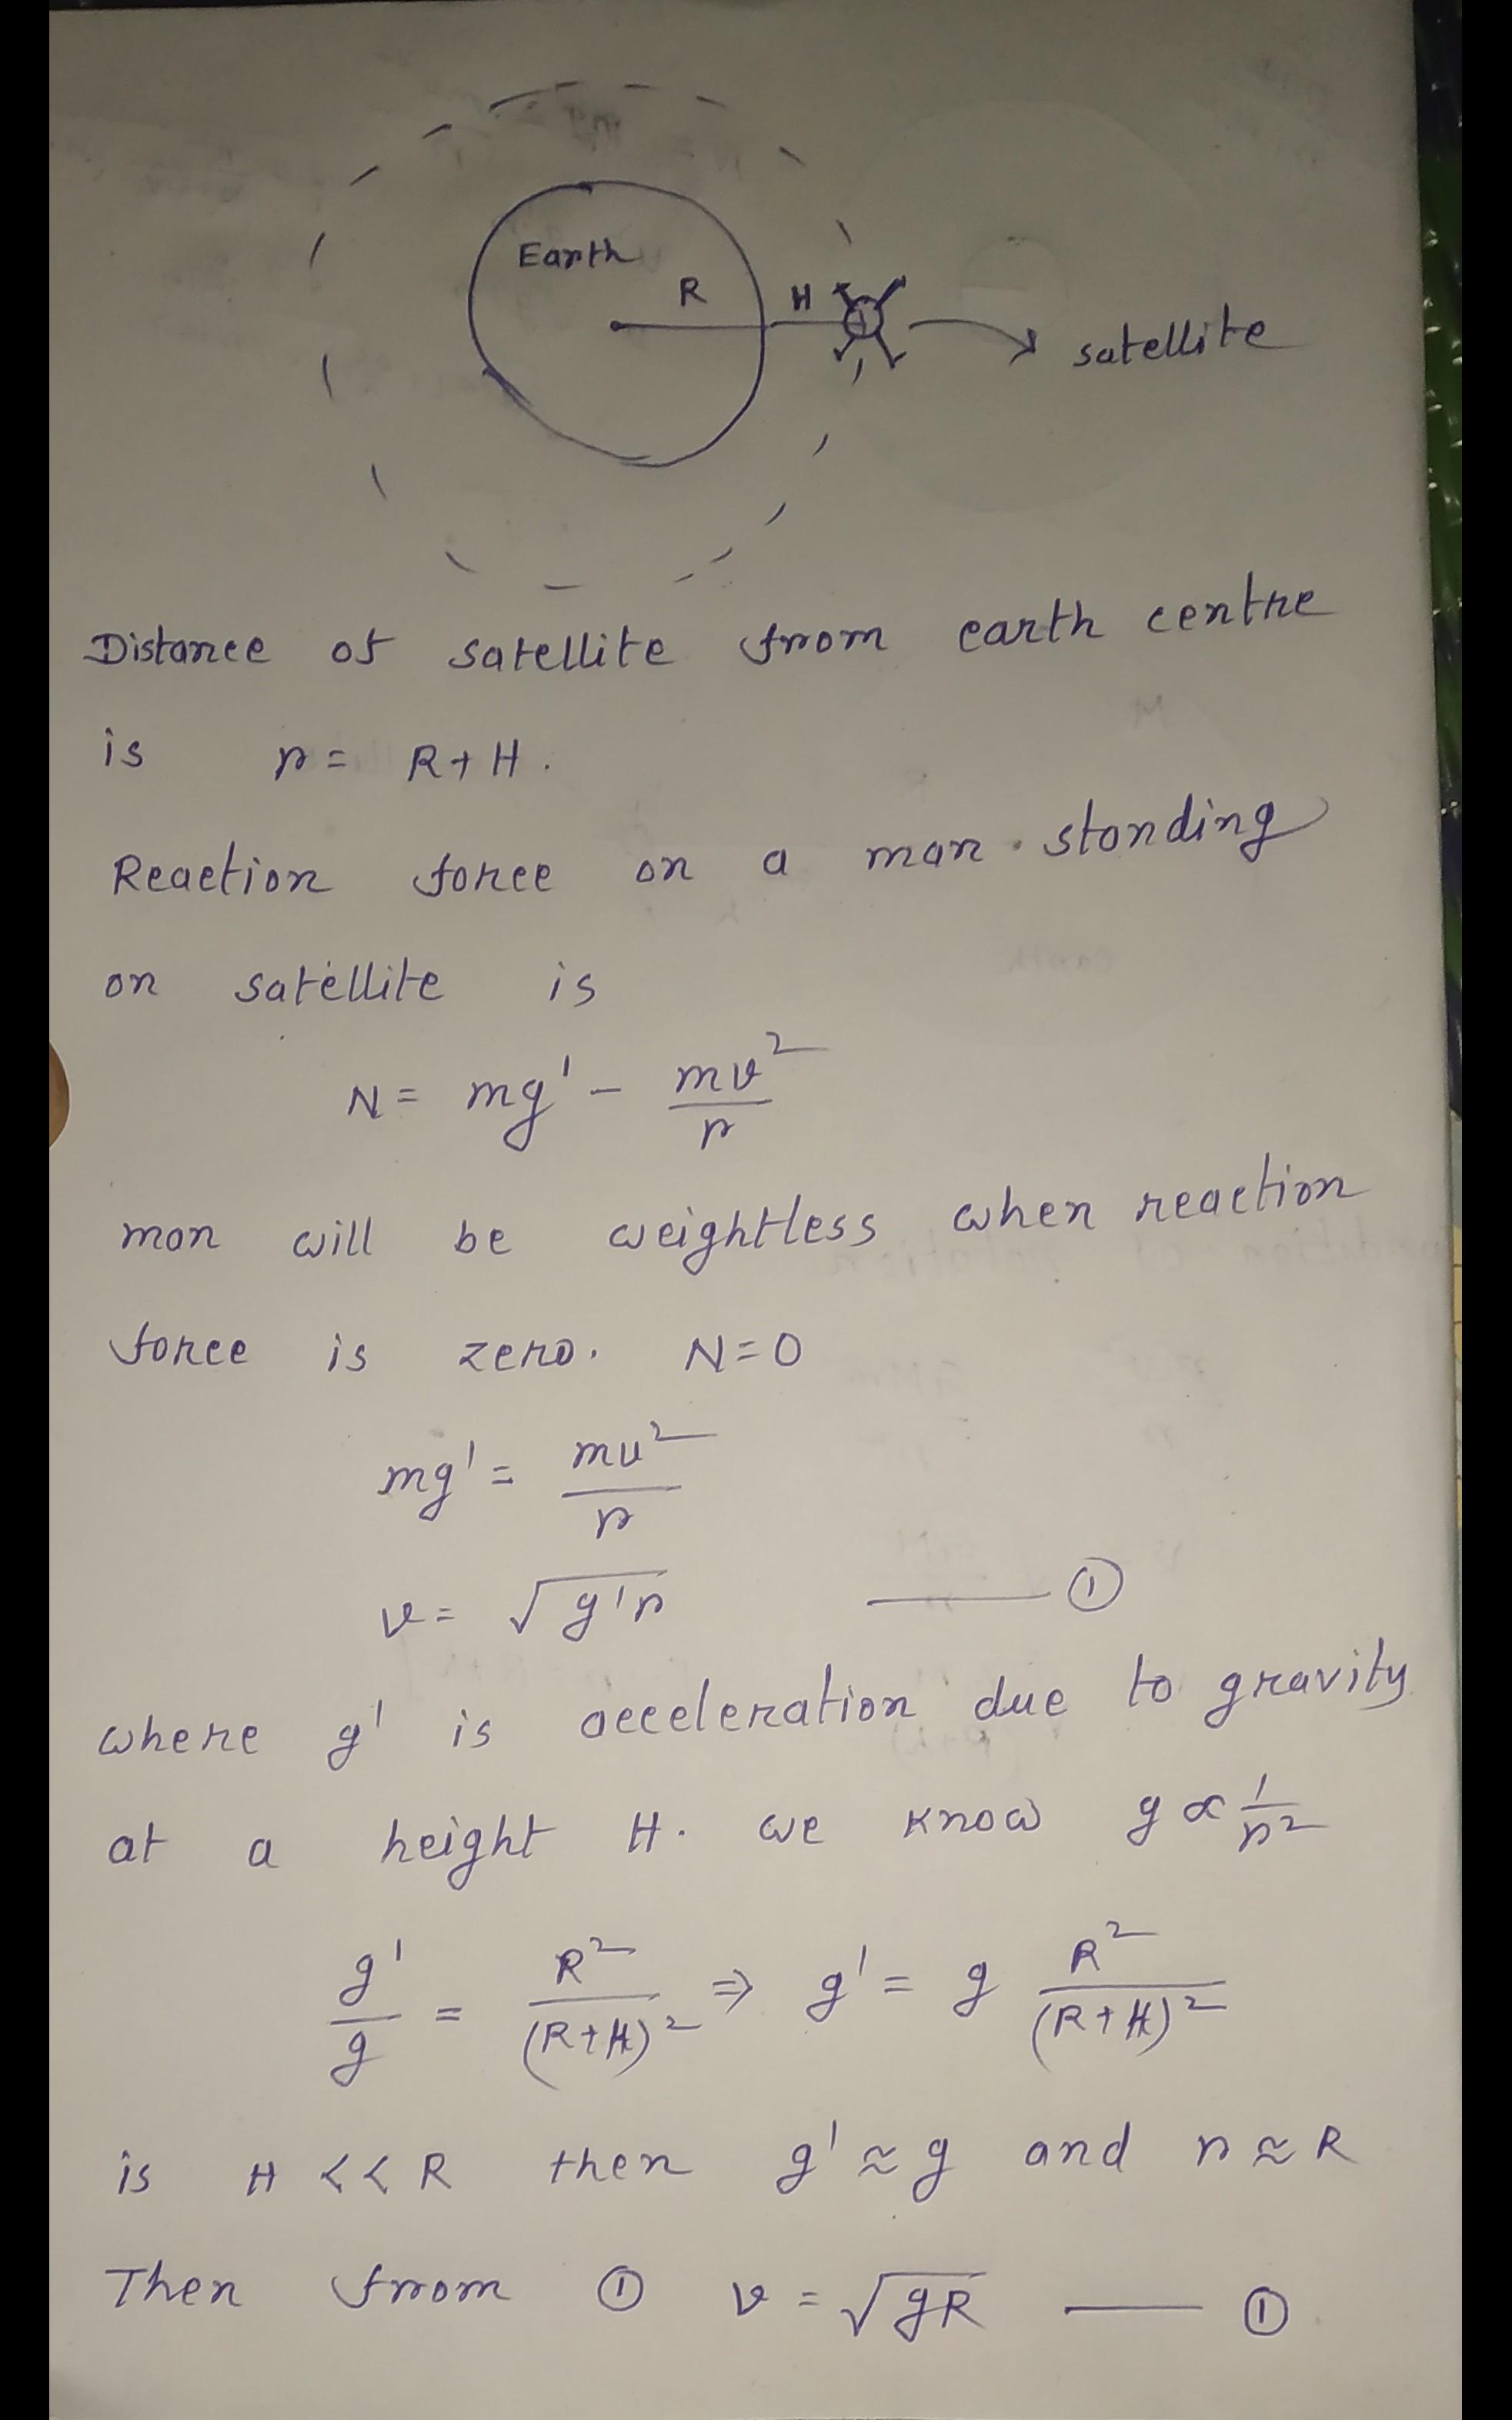 Earth
R H
satellite
Distance of satellite from earth centre
is r = R+H.
Reaction force on a man standing
on satellite is
N = mg' - mv²/r
man will be weightless when reaction
force is zero. N=0
mg' = mv²/r
v = √g'r —— ①
where g' is acceleration due to gravity
at a height H. we know g ∝ 1/r²
g'/g = R²/(R+H)² ⇒ g' = g R²/(R+H)²
is H << R then g' ≈ g and r ≈ R
Then from ① v = √gR —— ①